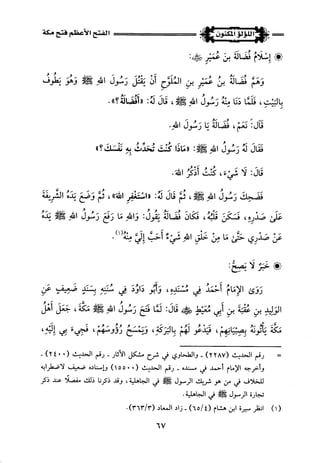 اللؤلؤ المكنون
الفتح الأعظم فتح مكة
إِسْلَامُ فُضَالَةَ بنِ عُمَيْرٍ ﷺ:
وَهَمَّ فُضَالَةُ بنُ عُمَيْرِ بنِ المُلَوِّحِ أَنْ يَقْتُلَ رَسُولَ اللهِ ﷺ وَهُوَ يَطُوفُ
بِالْبَيْتِ، فَلَمَّا دَنَا مِنْهُ رَسُولُ اللهِ ﷺ، قَالَ لَهُ: «أَفُضَالَةُ؟».
قَالَ: نَعَمْ، فُضَالَةُ يَا رَسُولَ اللهِ.
فَقَالَ لَهُ رَسُولُ اللهِ ﷺ: «مَاذَا كُنْتَ تُحَدِّثُ بِهِ نَفْسَكَ؟»
قَالَ: لَا شَيْءَ، كُنْتُ أَذْكُرُ اللهَ.
فَضَحِكَ رَسُولُ اللهِ ﷺ، ثُمَّ قَالَ لَهُ: «اسْتَغْفِرِ اللهَ»، ثُمَّ وَضَعَ يَدَهُ الشَّرِيفَةَ
عَلَى صَدْرِهِ، فَسَكَنَ قَلْبُهُ، فَكَانَ فُضَالَةُ يَقُولُ: وَاللهِ مَا رَفَعَ رَسُولُ اللهِ ﷺ يَدَهُ
عَنْ صَدْرِي حَتَّى مَا مِنْ خَلْقِ اللهِ شَيْءٌ أَحَبَّ إِلَيَّ مِنْهُ(١).
خَبَرٌ لَا يَصِحُّ:
رَوَى الإِمَامُ أَحْمَدُ فِي مُسْنَدِهِ، وَأَبُو دَاوُدَ فِي سُنَنِهِ بِسَنَدٍ ضَعِيفٍ عَنِ
الوَلِيدِ بنِ عُقْبَةَ بنِ أَبِي مُعَيْطٍ ﷺ قَالَ: لَمَّا فَتَحَ رَسُولُ اللهِ ﷺ مَكَّةَ، جَعَلَ أَهْلُ
مَكَّةَ يَأْتُونَهُ بِصِبْيَانِهِمْ، فَيَدْعُو لَهُمْ بِالبَرَكَةِ، وَيَمْسَحُ رُؤُوسَهُمْ، فَجِيءَ بِي إِلَيْهِ،
= رقم الحديث (٢٢٨٧) - والطحاوي في شرح مشكل الآثار - رقم الحديث (٢٤٠٠) -
وأخرجه الإمام أحمد في مسنده - رقم الحديث (١٥٥٠٠) وإسناده ضعيف لاضطرابه
للخلاف في من هو شريك الرسول ﷺ في الجاهلية، وقد ذكرنا ذلك مفصلًا عند ذكر
تجارة الرسول ﷺ في الجاهلية.
(١) انظر سيرة ابن هشام (٦٥/٤) - زاد المعاد (٣٦٣/٣).
٦٧